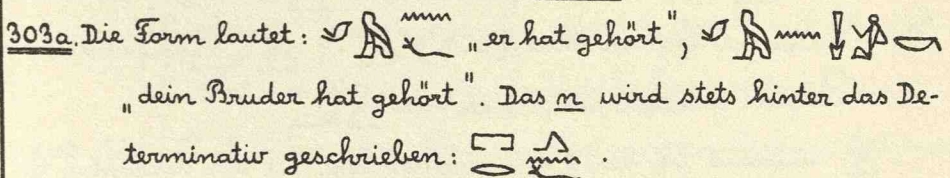 303a. Die Form lautet: 𓄔𓅓𓈖𓆑 „er hat gehört", 𓄔𓅓𓈖𓌢𓀀𓎡
„dein Bruder hat gehört". Das n wird stets hinter das De-
terminativ geschrieben: 𓉐𓂋𓂻𓈖𓆑.